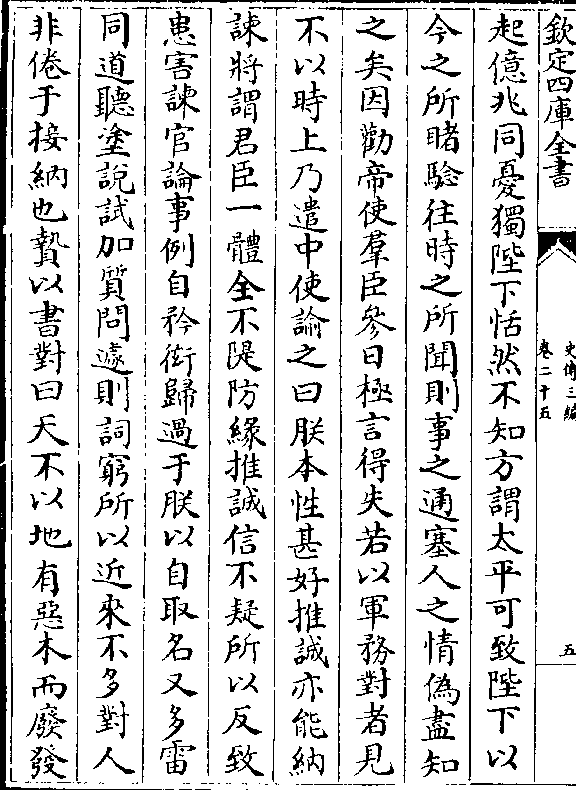 欽定四庫全書
史傳三編
卷二十五
五
起億兆同憂獨陛下恬然不知方謂太平可致陛下以
今之所睹驗往時之所聞則事之通塞人之情偽盡知
之矣因勸帝使羣臣參日極言得失若以軍務對者見
不以時上乃遣中使諭之曰朕本性甚好推誠亦能納
諫將謂君臣一體全不隄防緣推誠信不疑所以反致
患害諫官論事例自矜衒歸過于朕以自取名又多雷
同道聽塗說試加質問遽則詞窮所以近來不多對人
非倦于接納也贄以書對曰天不以地有惡木而廢發